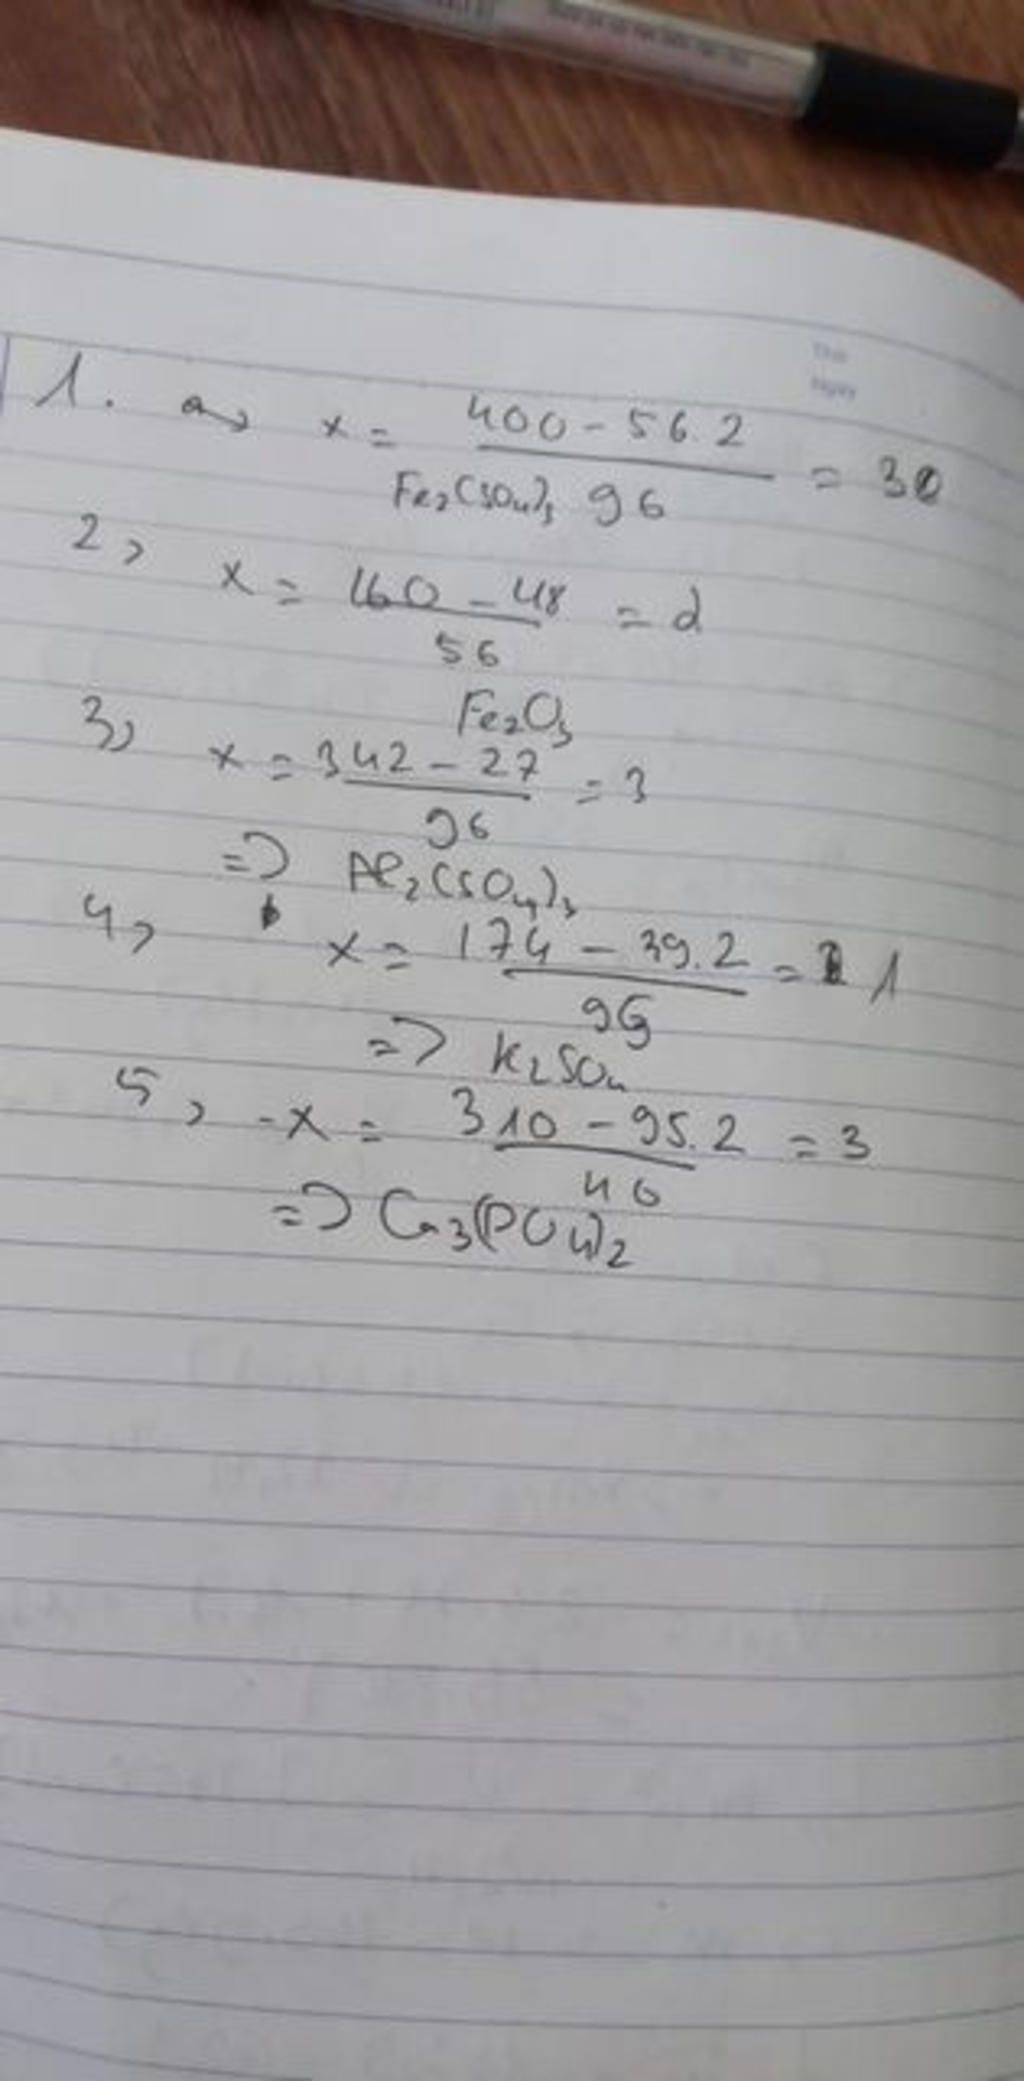 1. a, x = 400 - 56.2 / 96 = 3
Fe2(SO4)3
2, x = 160 - 48 / 56 = 2
Fe2O3
3, x = 342 - 27 / 96 = 3
=> Al2(SO4)3
4, x = 174 - 39.2 / 96 = 1
=> K2SO4
5, -x = 310 - 95.2 / 40 = 3
=> Ca3(PO4)2